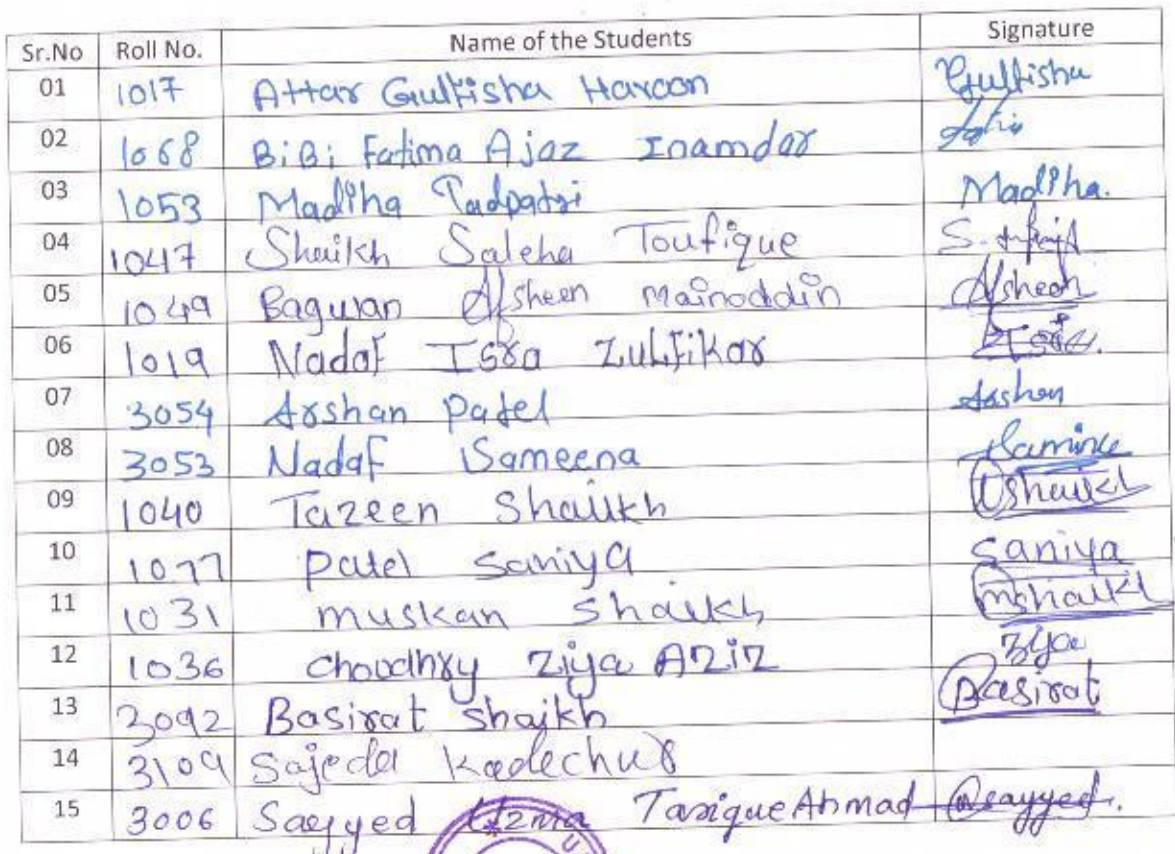 Sr.No Roll No. Name of the Students Signature
01 1017 Attar Gulfisha Haroon Gulfisha
02 1068 BiBi Fatima Ajaz Inamdar
03 1053 Madiha Tadpatri Madiha.
04 1047 Shaikh Saleha Toufique S.
05 1049 Bagwan Afsheen Mainoddin Afsheen
06 1019 Nadaf Isra Zulfikar
07 3054 Arshan Patel Arshan
08 3053 Nadaf Sameena
09 1040 Tazeen Shaikh Tshaikh
10 1077 Patel Saniya Saniya
11 1031 muskan Shaikh mshaikh
12 1036 Choudhry Ziya AZiZ Ziya
13 3092 Basirat Shaikh Basirat
14 3109 Sajeda Kadechur
15 3006 Sayyed Uzma Tarique Ahmad